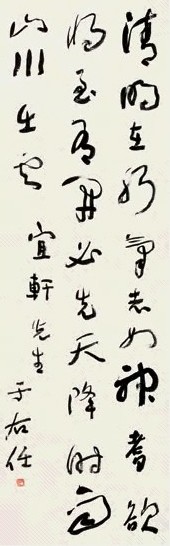 清明在躬氣志如神耆欲
將至有開必先天降時雨
山川出雲
宜軒先生
于右任